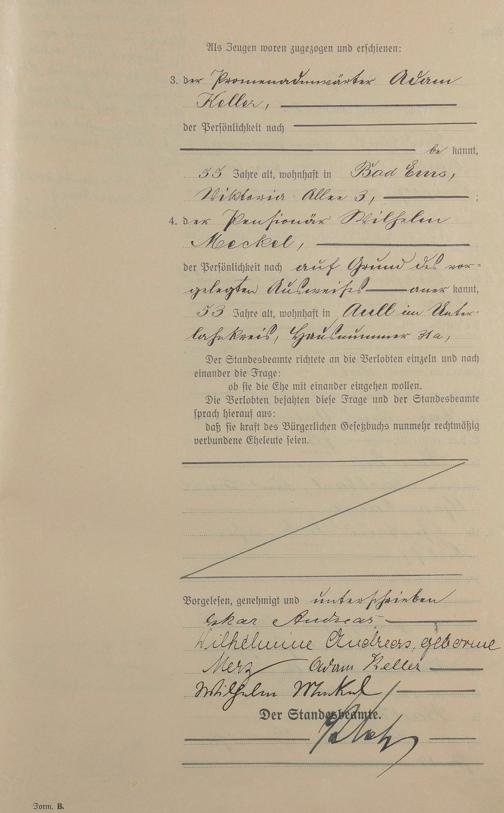 Als Zeugen waren zugezogen und erschienen:
3. der Promenadenwärter Adam
Keller,
der Persönlichkeit nach
be kannt,
55 Jahre alt, wohnhaft in Bad Ems,
Viktoria Allee 3, ;
4. der Pensionär Wilhelm
Meckel,
der Persönlichkeit nach auf Grund des vor-
gelegten Ausweises aner kannt,
53 Jahre alt, wohnhaft in Aull im Unter-
lahnkreis, Hausnummer 31a,
Der Standesbeamte richtete an die Verlobten einzeln und nach
einander die Frage:
ob sie die Ehe mit einander eingehen wollen.
Die Verlobten bejahten diese Frage und der Standesbeamte
sprach hierauf aus:
daß sie kraft des Bürgerlichen Gesetzbuchs nunmehr rechtmäßig
verbundene Eheleute seien.
Vorgelesen, genehmigt und unterschrieben
Oskar Andreas
Wilhelmine Andreas, geborne
Merz Adam Keller
Wilhelm Meckel
Der Standesbeamte.
Form. B.